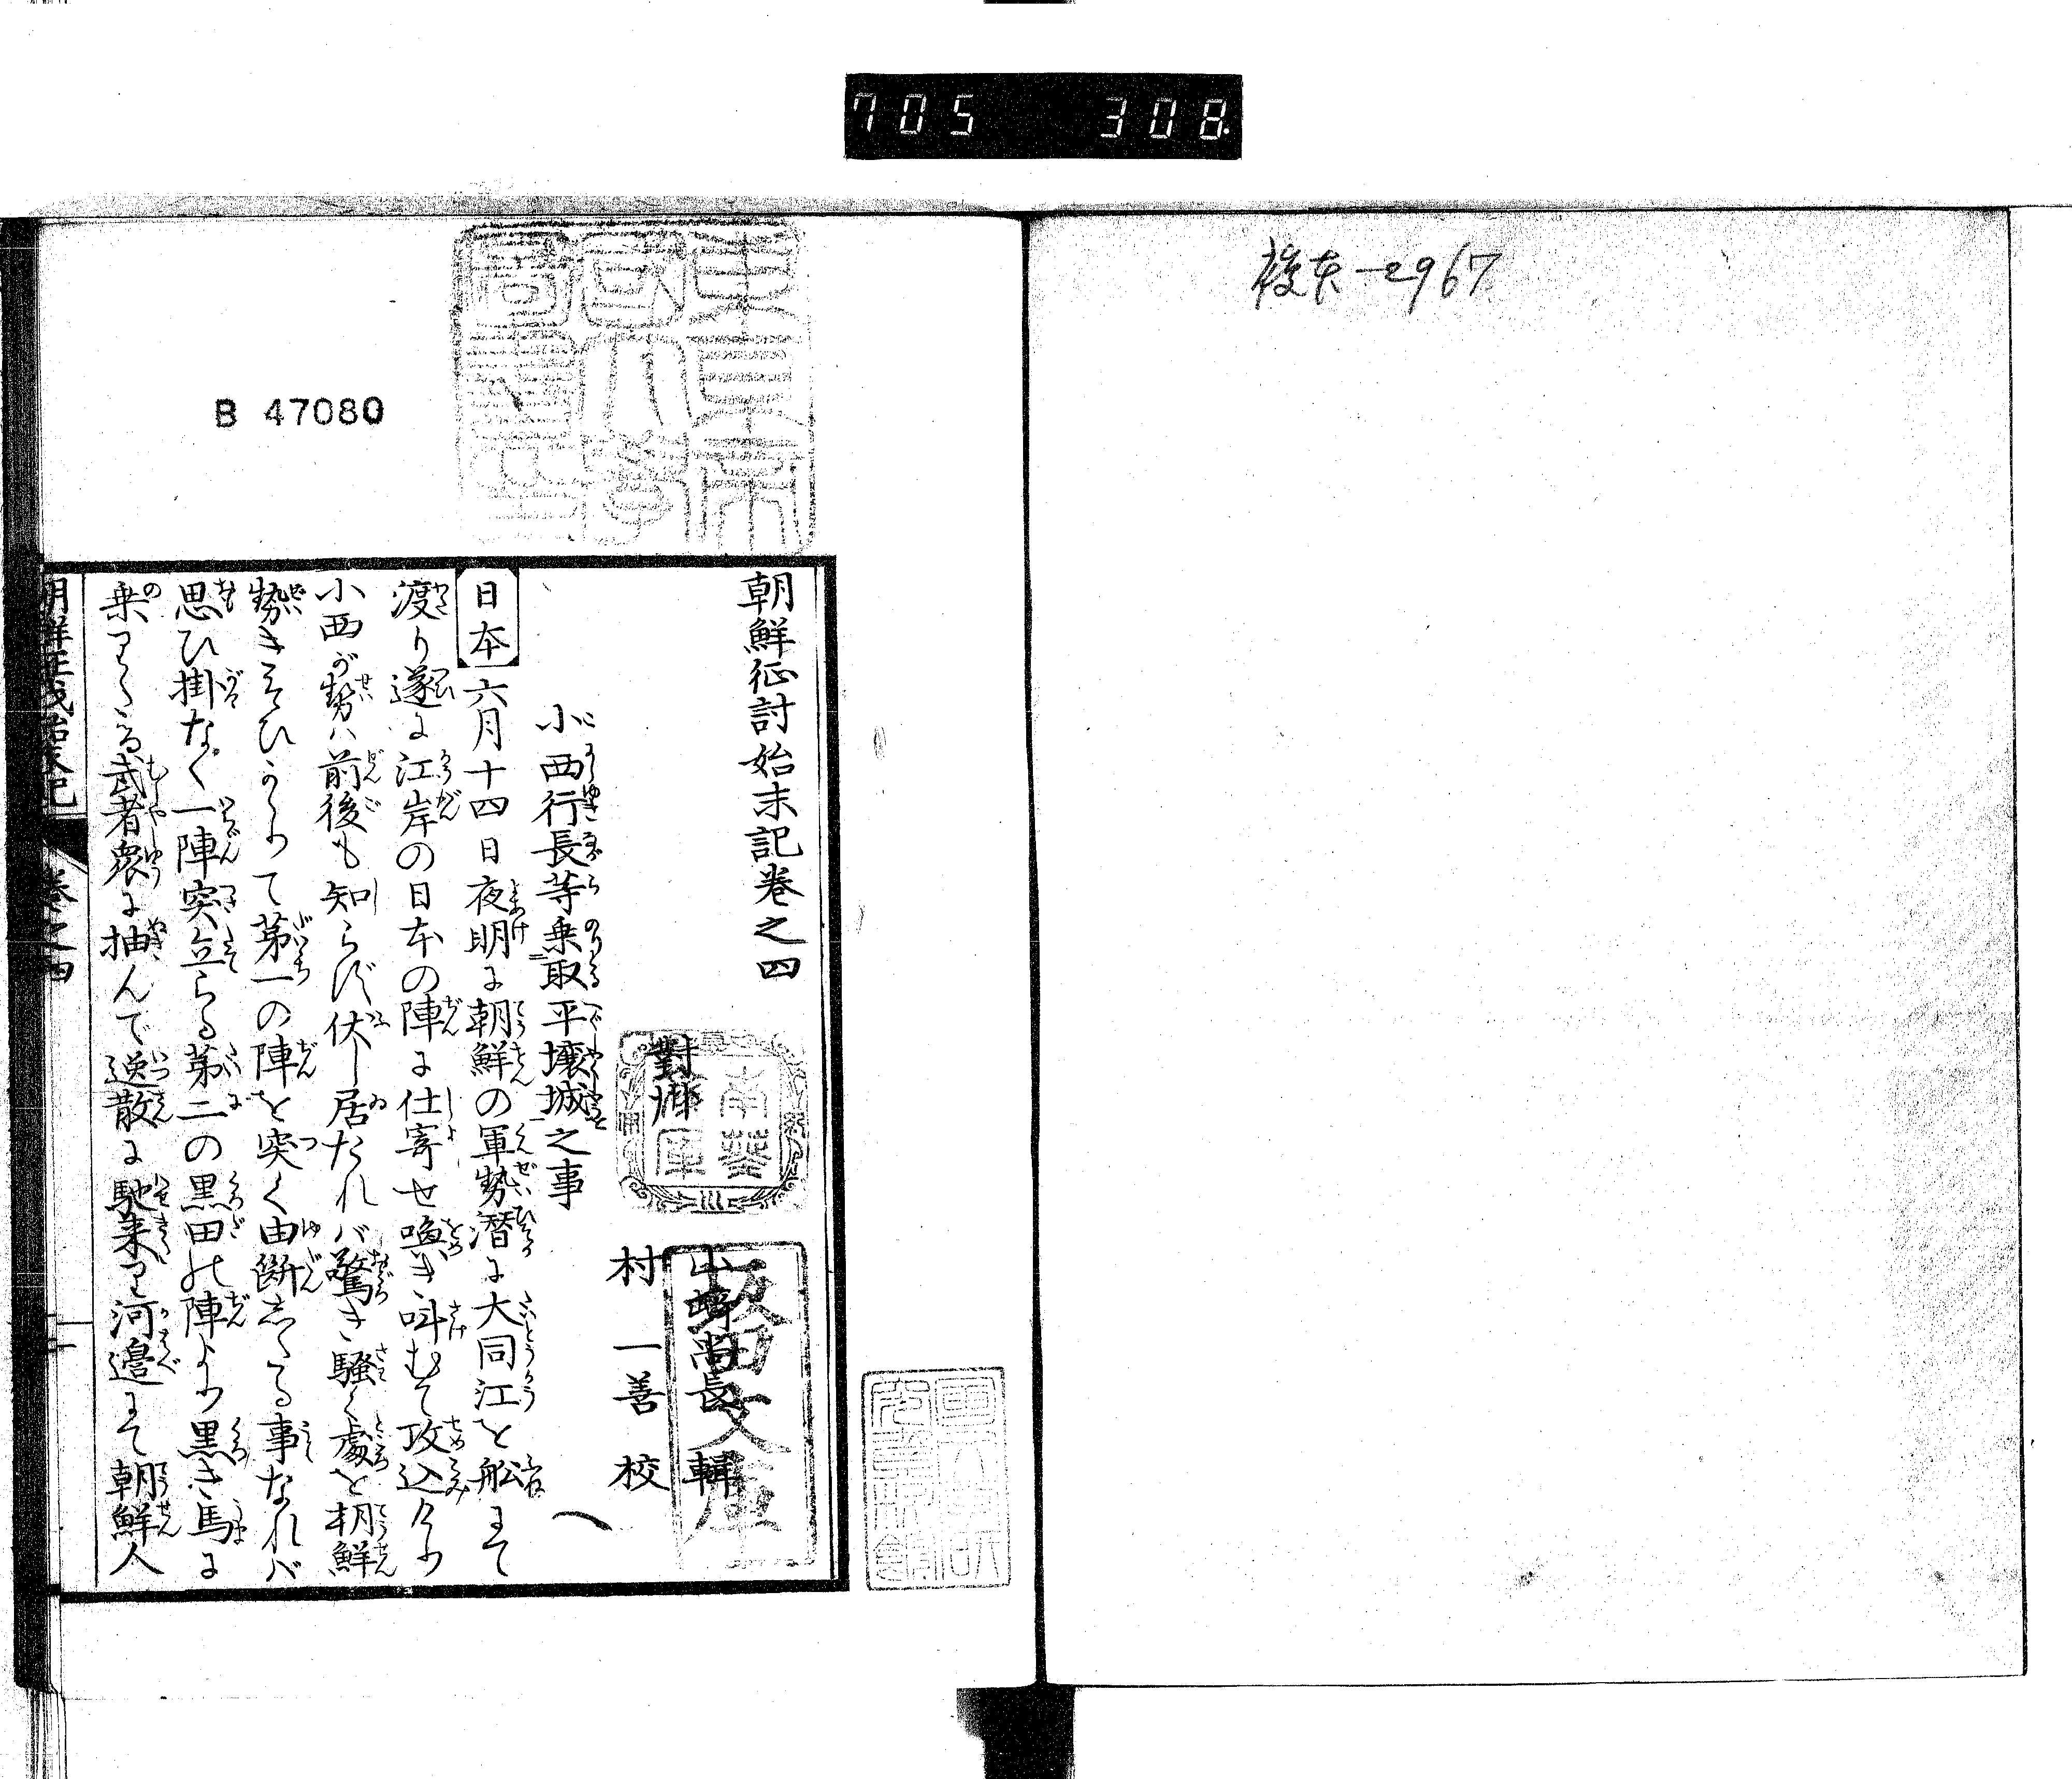 705 308
複本-2967
B 47080
朝鮮征討始末記巻之四
對州
山崎尚長 輯
村 一善 校
小西行長等乗取平壌城之事
日本 六月十四日夜明に朝鮮の軍勢潜に大同江を舩にて
渡り遂に江岸の日本の陣に仕寄せ喚き叫むて攻込けり
小西が勢ハ前後も知らず伏し居たれバ驚き騒く處を朝鮮
勢きそひかゝつて第一の陣を突く由断したる事なれバ
思ひ掛なく一陣突立らる第二の黒田の陣より黒き馬に
乗りたる武者衆に抽んで逸散に馳来り河邉にて朝鮮人
朝鮮征伐始末記 巻之四